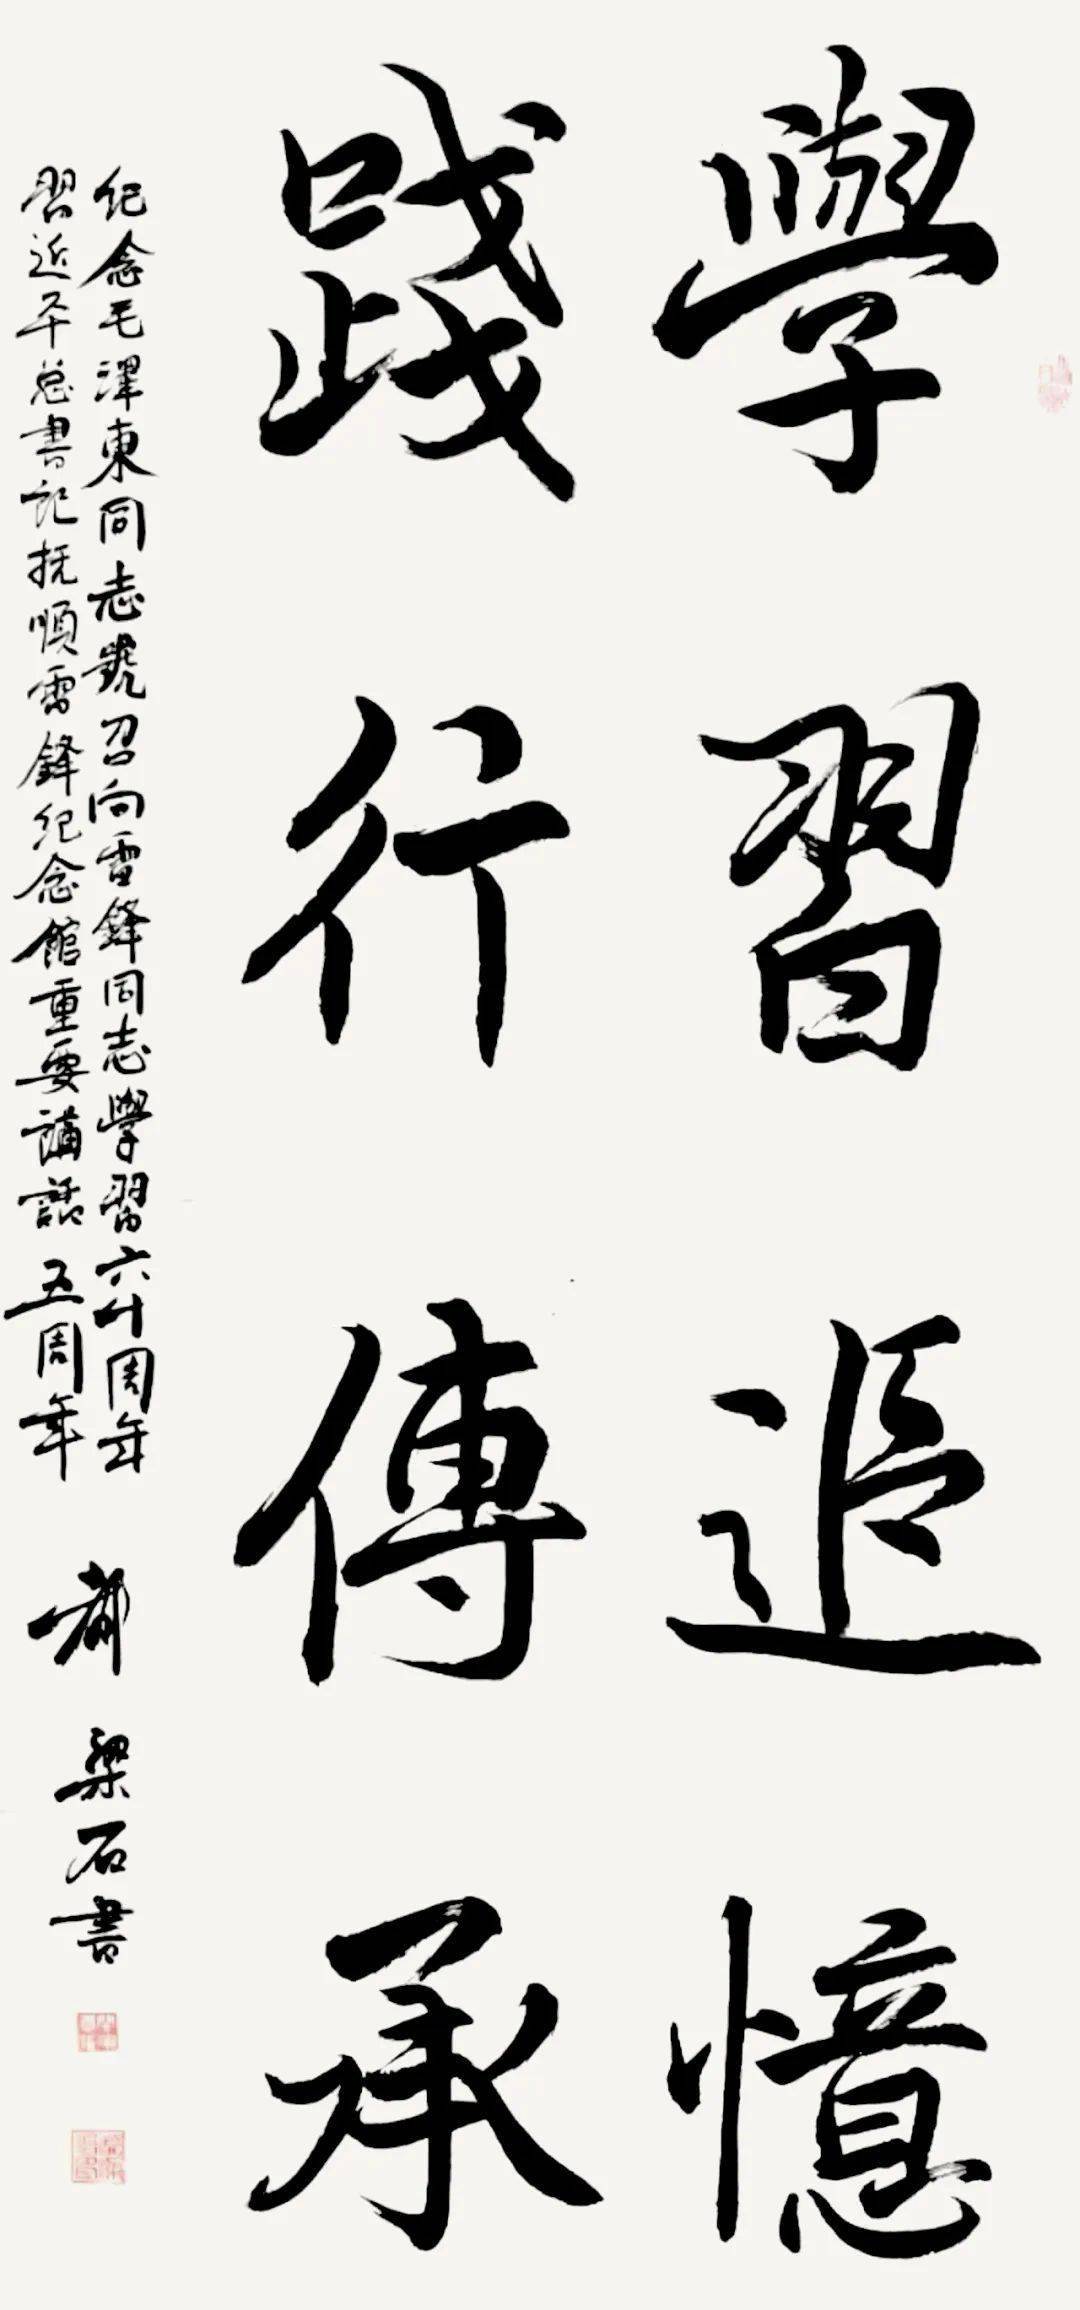 學習追憶
踐行傳承
纪念毛澤東同志號召向雷鋒同志學習六十周年
習近平总書記抚順雷鋒纪念館重要講話五周年
梁石書